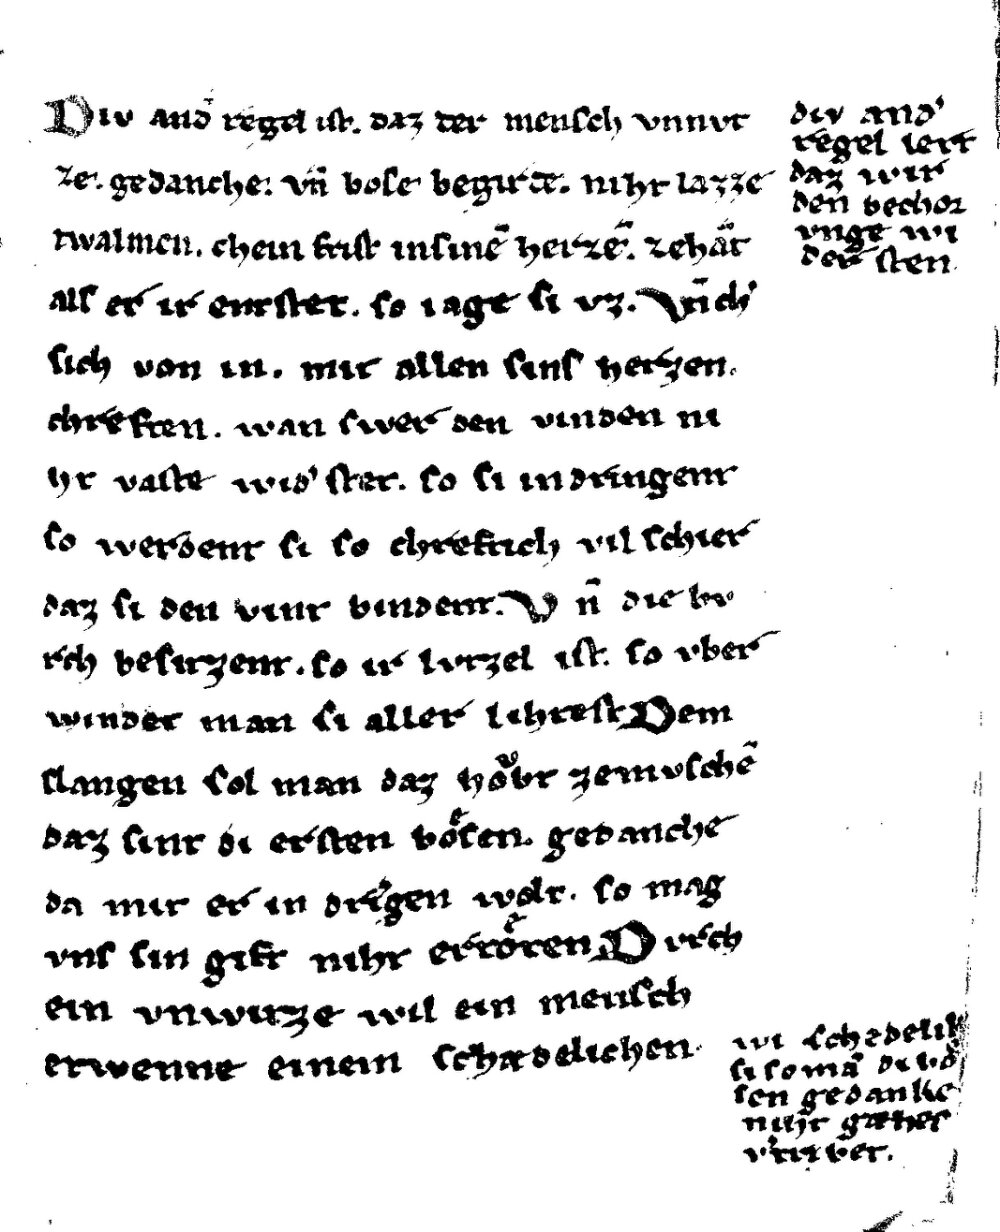 Div and̾ regel ist. daz der mensch vnnvt
ze. gedanche. vn̄ bose begirde. niht lazze
twalmen. chein frist in sinē herzē. zehāt
als er ir enstet. so iage si vz. Vn̄ch̾
sich von in. mit allen sins herzen.
chreften. wan swer den vinden ni
ht vaste wid̾ stet. so si in dringent
so werdent si so chreftich vil schier
daz si den vint bindent. Vn̄ die bv
rch besitzent. so ir lvtzel ist. so vber
windet man si aller lihtest Dem
slangen sol man daz hoͮbt zemvschē
daz sint di ersten boͤsen. gedanche
da mit er in dringen wolt. so mag
vns sin gift niht ertoͤten Dvrch
ein vnwitze wil ein mensch
erwenne einem schædelichen
div and̾
regel lert
daz wir
den bechor
vnge wi
der sten.
wi schedelik
si so mā di bo
sen gedanke
niht gæhes
v̾trīber.